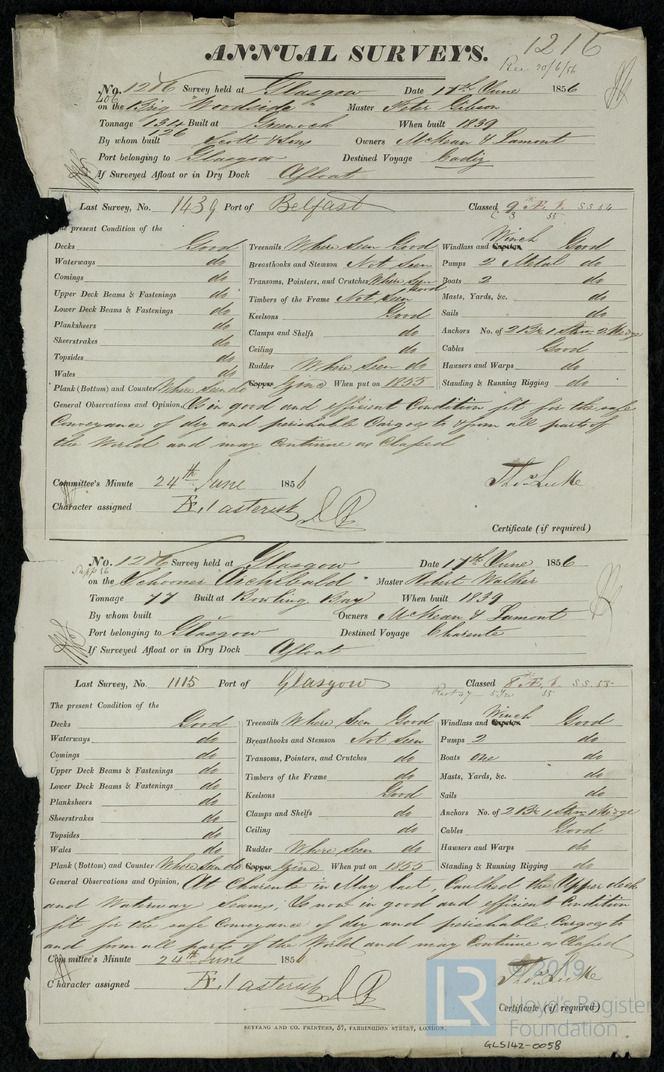 1216
ANNUAL SURVEYS.
Rec 20/6/56
No. 1216 Survey held at Glasgow Date 17th June 1856
406 on the Brig "Woodside" Master Peter Gibson
Tonnage 134 Built at Greenock When built 1839
126
By whom built Scott & Sons Owners McKean & Lamont
Port belonging to Glasgow Destined Voyage Cadiz
If Surveyed Afloat or in Dry Dock Afloat
Last Survey, No. 1439 Port of Belfast Classed 9 Æ.1. SS 54
The present Condition of the
Decks Good Treenails Where Seen Good Windlass and Winch Good
Waterways do Breasthooks and Stemson Not Seen Pumps 2 Metal do
Comings do Transoms, Pointers, and Crutches Where Seen Good Boats 2 do
Upper Deck Beams & Fastenings do Timbers of the Frame Not Seen Masts, Yards, &c. do
Lower Deck Beams & Fastenings do Keelsons Good Sails do
Planksheers do Clamps and Shelfs do Anchors No. of 2 Br 1 Strm 2 Kedge
Sheerstrakes do Ceiling do Cables Good
Topsides do Rudder Where Seen do Hawsers and Warps do
Wales do Copper Zinc When put on 1855 Standing & Running Rigging do
Plank (Bottom) and Counter Where Seen do
General Observations and Opinion, Is in good and efficient Condition fit for the safe
Conveyance of dry and perishable Cargoes to & from all parts of
the World and may Continue as Classed
Committee's Minute 24th June 1856
Thos Luke
Character assigned Æ.1 asterisk
Certificate (if required)
No. 1216 Survey held at Glasgow Date 17th June 1856
on the Schooner "Archibald" Master Robert Walker
Tonnage 77 Built at Bowling Bay When built 1839
By whom built Owners McKean & Lamont
Port belonging to Glasgow Destined Voyage Charente
If Surveyed Afloat or in Dry Dock Afloat
Last Survey, No. 1115 Port of Glasgow Classed 8 Æ.1. SS.53
The present Condition of the
Decks Good Treenails Where Seen Good Windlass and Winch Good
Waterways do Breasthooks and Stemson Not Seen Pumps 2 do
Comings do Transoms, Pointers, and Crutches do Boats One do
Upper Deck Beams & Fastenings do Timbers of the Frame do Masts, Yards, &c. do
Lower Deck Beams & Fastenings do Keelsons Good Sails do
Planksheers do Clamps and Shelfs do Anchors No. of 2 Br 1 Strm 1 Kedge
Sheerstrakes do Ceiling do Cables Good
Topsides do Rudder Where Seen do Hawsers and Warps do
Wales do Copper Zinc When put on 1855 Standing & Running Rigging do
Plank (Bottom) and Counter Where Seen do
General Observations and Opinion, At Charente in May last, Caulked the Upper deck
and Waterway Seams, Is now in good and efficient Condition
fit for the safe Conveyance of dry and perishable Cargoes to
and from all parts of the World and may Continue as Classed
Committee's Minute 24th June 1856
Thos Luke
Character assigned Æ.1 asterisk
Certificate (if required)
SEYFANG AND CO. PRINTERS, 57, FARRINGDON STREET, LONDON.
LR
© 2019
Lloyd's Register
Foundation
GLS142-0058